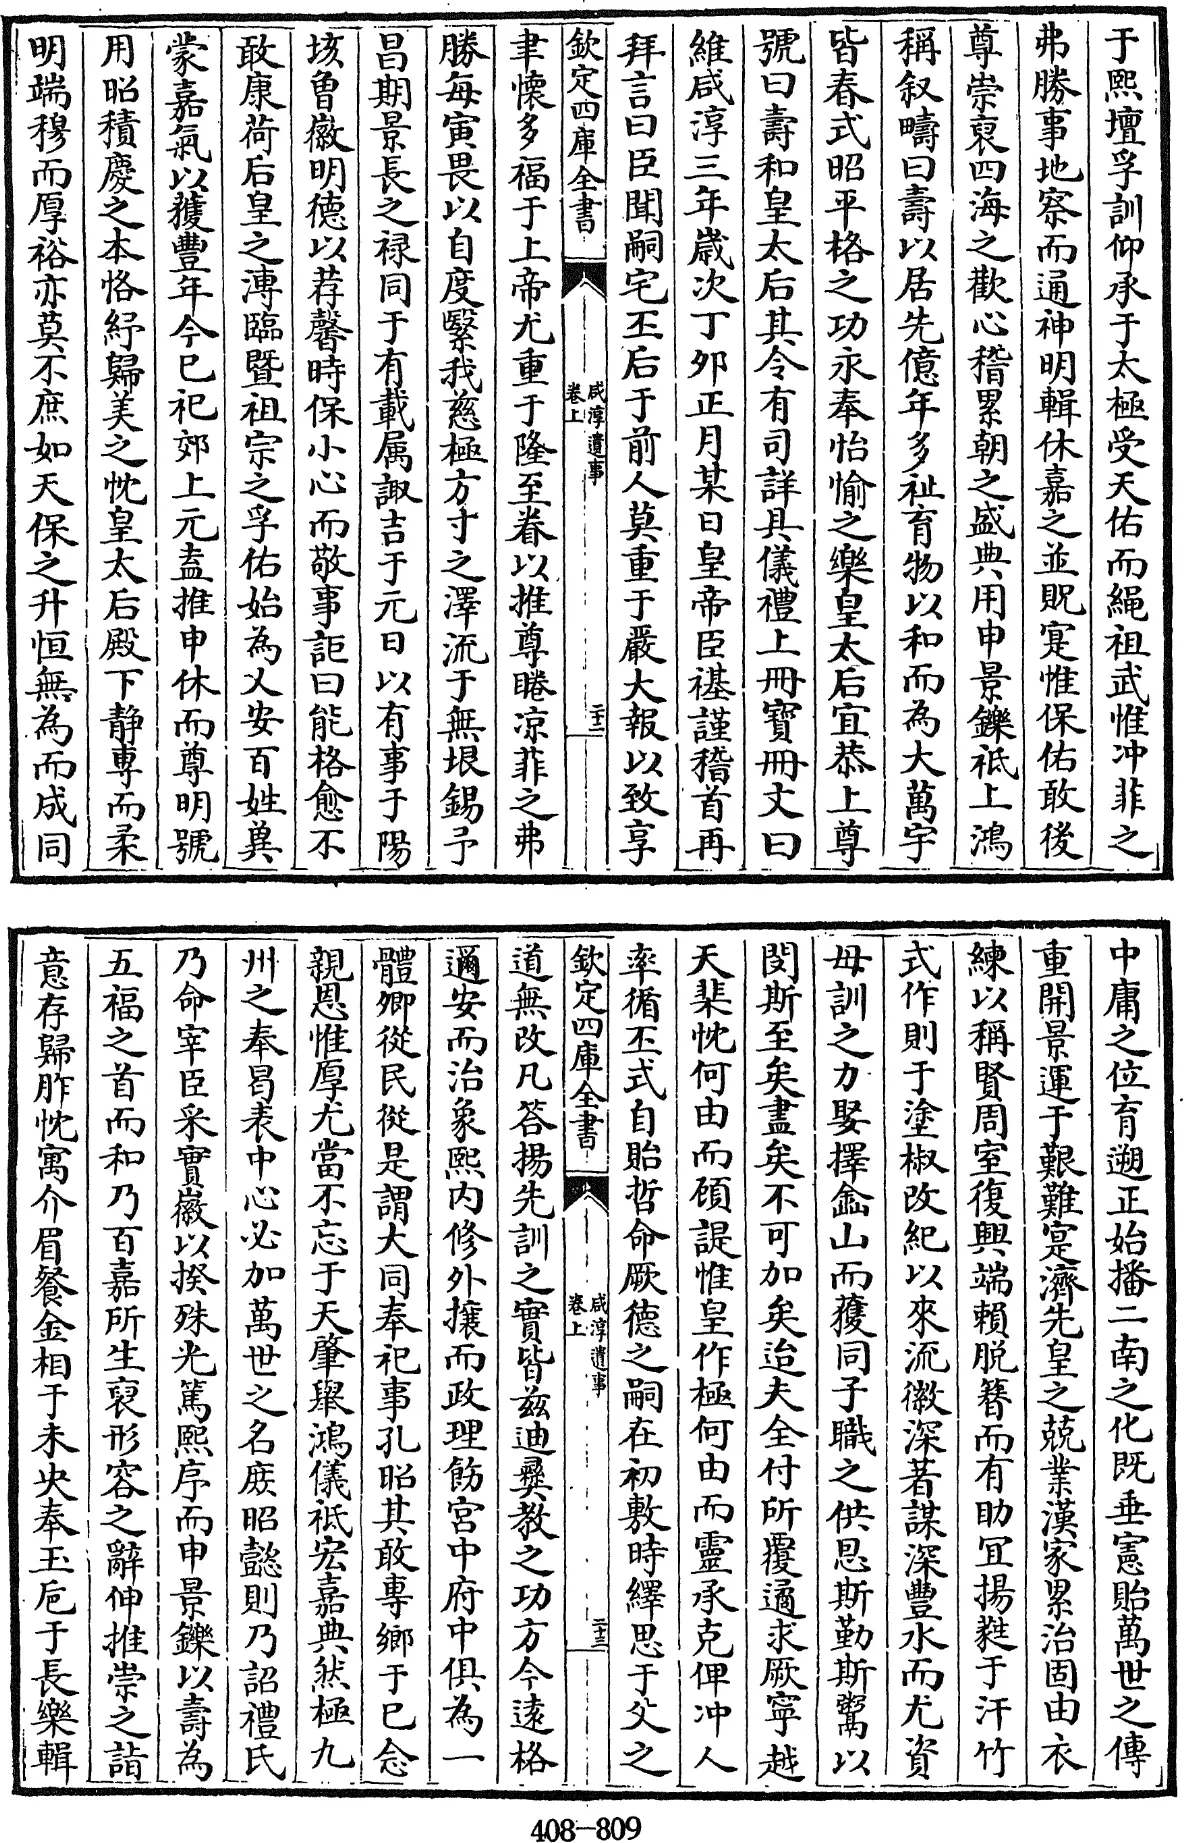 于熙壇孚訓仰承于太極受天佑而繩祖武惟冲菲之
弗勝事地察而通神明輯休嘉之並貺寔惟保佑敢後
尊崇裒四海之歡心稽累朝之盛典用申景鑠祗上鴻
稱叙疇曰壽以居先億年多祉育物以和而為大萬宇
皆春式昭平格之功永奉怡愉之樂皇太后宜恭上尊
號曰壽和皇太后其令有司詳具儀禮上冊寶冊文曰
維咸淳三年歲次丁夘正月某日皇帝臣禥謹稽首再
拜言曰臣聞嗣宅丕后于前人莫重于嚴大報以致享
欽定四庫全書
咸淳遺事
卷上
二十二
聿懷多福于上帝尤重于隆至眷以推尊睠凉菲之弗
勝每寅畏以自度繄我慈極方寸之澤流于無垠錫予
昌期景長之禄同于有載属諏吉于元日以有事于陽
垓曾徽明德以荐馨時保小心而敬事詎曰能格愈不
敢康荷后皇之溥臨暨祖宗之孚佑始為乂安百姓奠
蒙嘉氣以獲豐年今巳祀郊上元盍推申休而尊明號
用昭積慶之本恪紓歸美之忱皇太后殿下静專而柔
明端穆而厚裕亦莫不庶如天保之升恒無為而成同
中庸之位育遡正始播二南之化既垂憲貽萬世之傳
重開景運于艱難寔濟先皇之兢業漢家累治固由衣
練以稱賢周室復興端賴脱簪而有助冝揚蕤于汗竹
式作則于塗椒改紀以來流徽深著謀深豐水而尤資
母訓之力娶擇嵞山而獲同子職之供恩斯勤斯鬻以
閔斯至矣盡矣不可加矣迨夫全付所覆遹求厥寧越
天棐忱何由而頋諟惟皇作極何由而靈承克俾冲人
率循丕式自貽哲命厥德之嗣在初敷時繹思于父之
欽定四庫全書
咸淳遺事
卷上
二十三
道無改凡答揚先訓之實皆兹迪彝教之功方今逺格
邇安而治象熙内修外攘而政理飭宮中府中俱為一
體卿從民從是謂大同奉祀事孔昭其敢專鄉于巳念
親恩惟厚尤當不忘于天肇舉鴻儀祗宏嘉典然極九
州之奉曷表中心必加萬世之名庻昭懿則乃詔禮氏
乃命宰臣采實徽以揆殊光篤熙序而申景鑠以壽為
五福之首而和乃百嘉所生裒形容之辭伸推崇之詣
意存歸胙忱寓介眉餐金相于未央奉玉巵于長樂輯
408-809